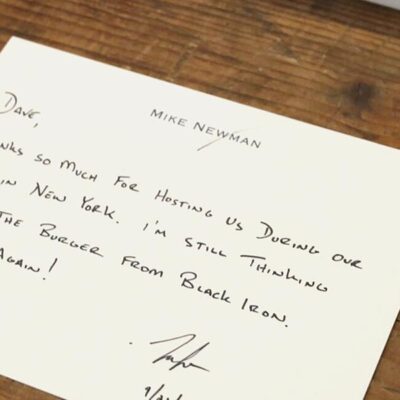 MIKE NEWMAN
DAVE,
NKS SO MUCH FOR HOSTING US DURING OUR
IN NEW YORK. I'M STILL THINKING
THE BURGER FROM BLACK IRON.
AGAIN!